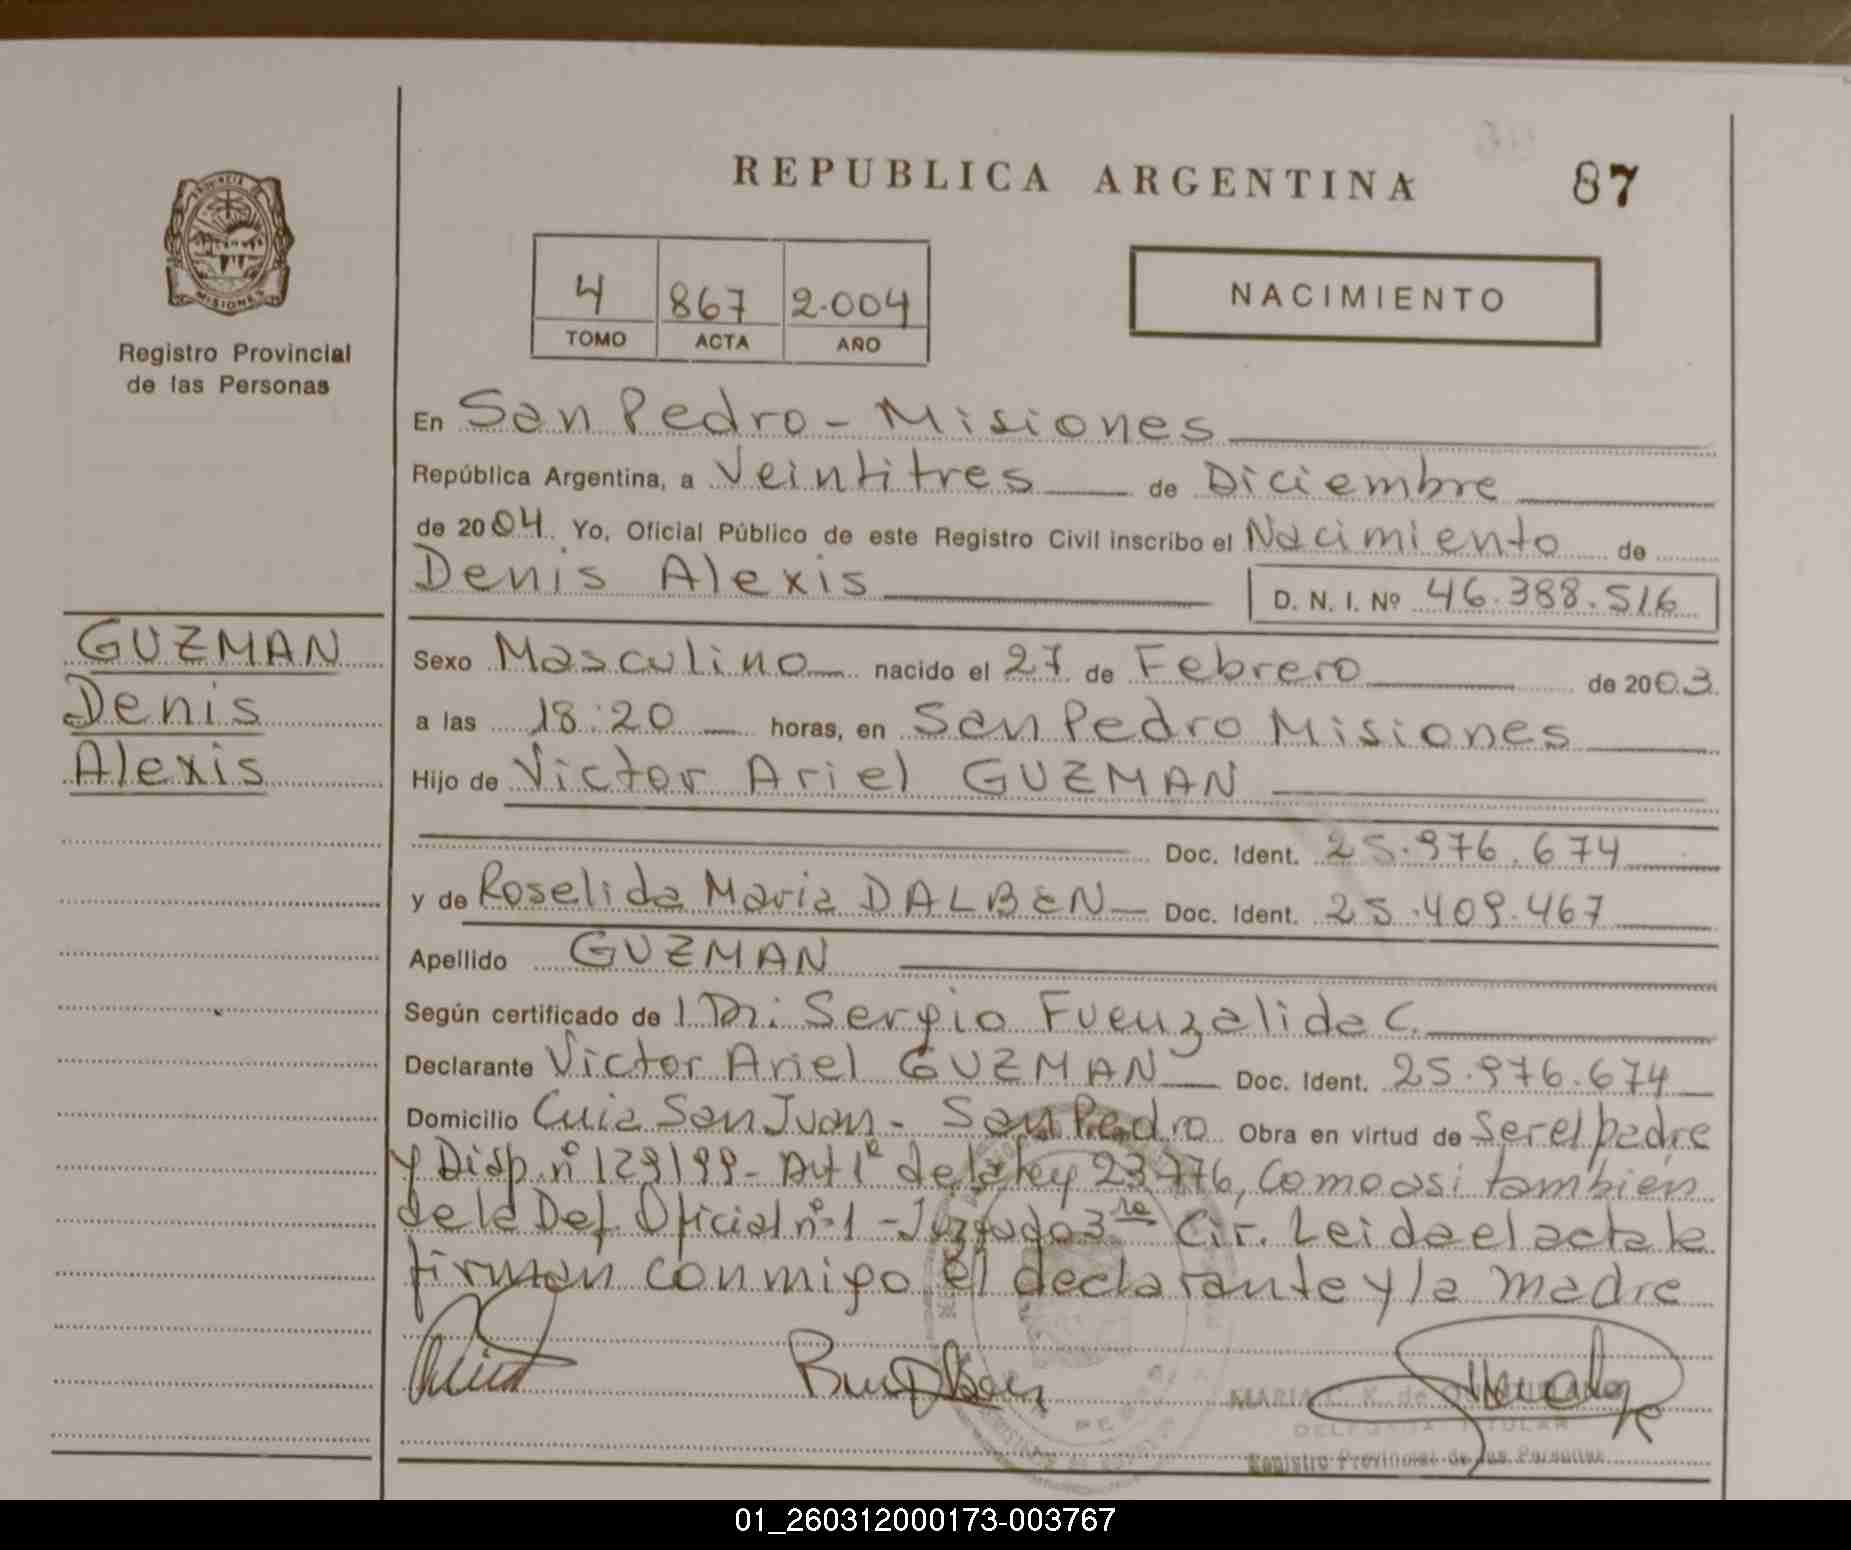 REPUBLICA ARGENTINA 87
PROVINCIA DE
MISIONES
Registro Provincial
de las Personas
4 867 2.004
TOMO ACTA AÑO
NACIMIENTO
En San Pedro - Misiones
República Argentina, a Veintitres de Diciembre
de 2004. Yo, Oficial Público de este Registro Civil inscribo el Nacimiento de
Denis Alexis D. N. I. Nº 46.388.516
GUZMAN
Denis
Alexis
Sexo Masculino nacido el 27 de Febrero de 2003.
a las 18:20 horas, en San Pedro Misiones
Hijo de Victor Ariel GUZMAN
Doc. Ident. 25.976.674
y de Roselida Maria DALBEN Doc. Ident. 25.409.467
Apellido GUZMAN
Según certificado de Sergio Fuenzalida C.
Declarante Victor Ariel GUZMAN Doc. Ident. 25.976.674
Domicilio San Juan - San Pedro Obra en virtud de Ser el padre
y Disp. nº 129/99 - Art 1º de la ley 23.776, como asi también
de la Def. Oficial nº 1 - Juzgado 3ra Cir. Leida el acta la
firman conmigo el declarante y la madre
MARIA K. de
TITULAR
Registro Provincial de las Personas
01_260312000173-003767